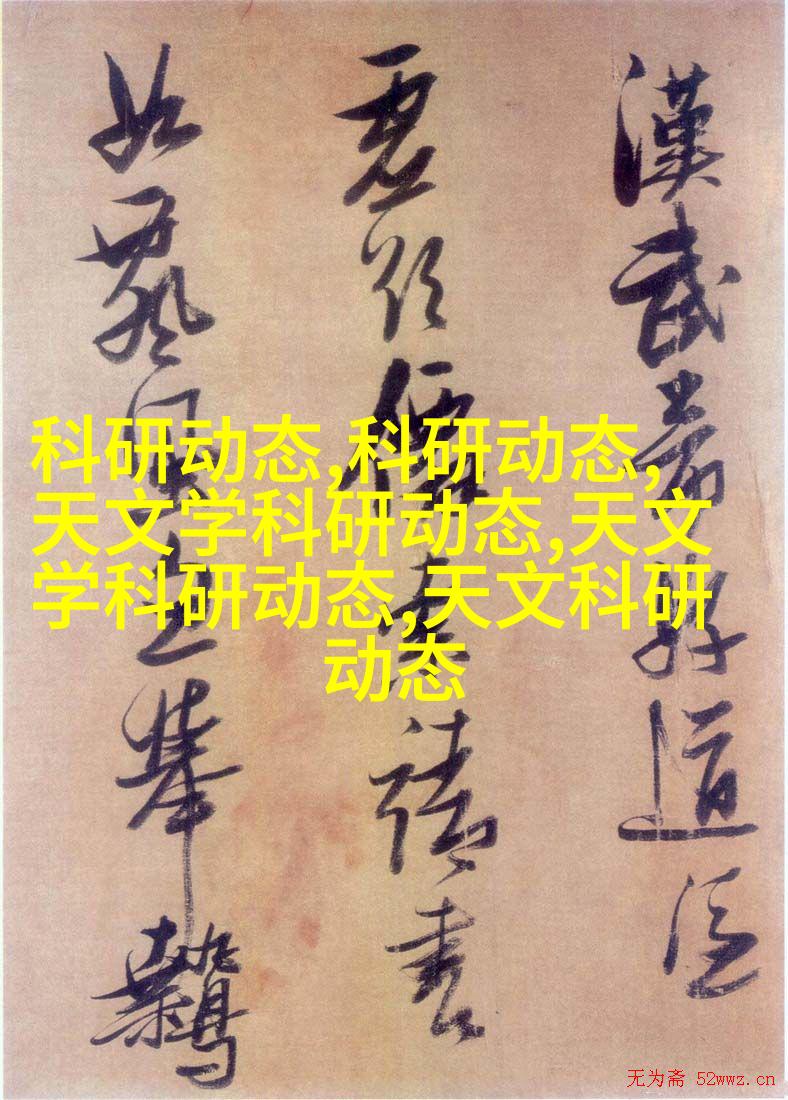 漢武好道
虚請書
如飄風之舉鷙
科研动态,科研动态,
天文学科研动态,天文
学科研动态,天文科研
动态
无为斋 52wwz.cn